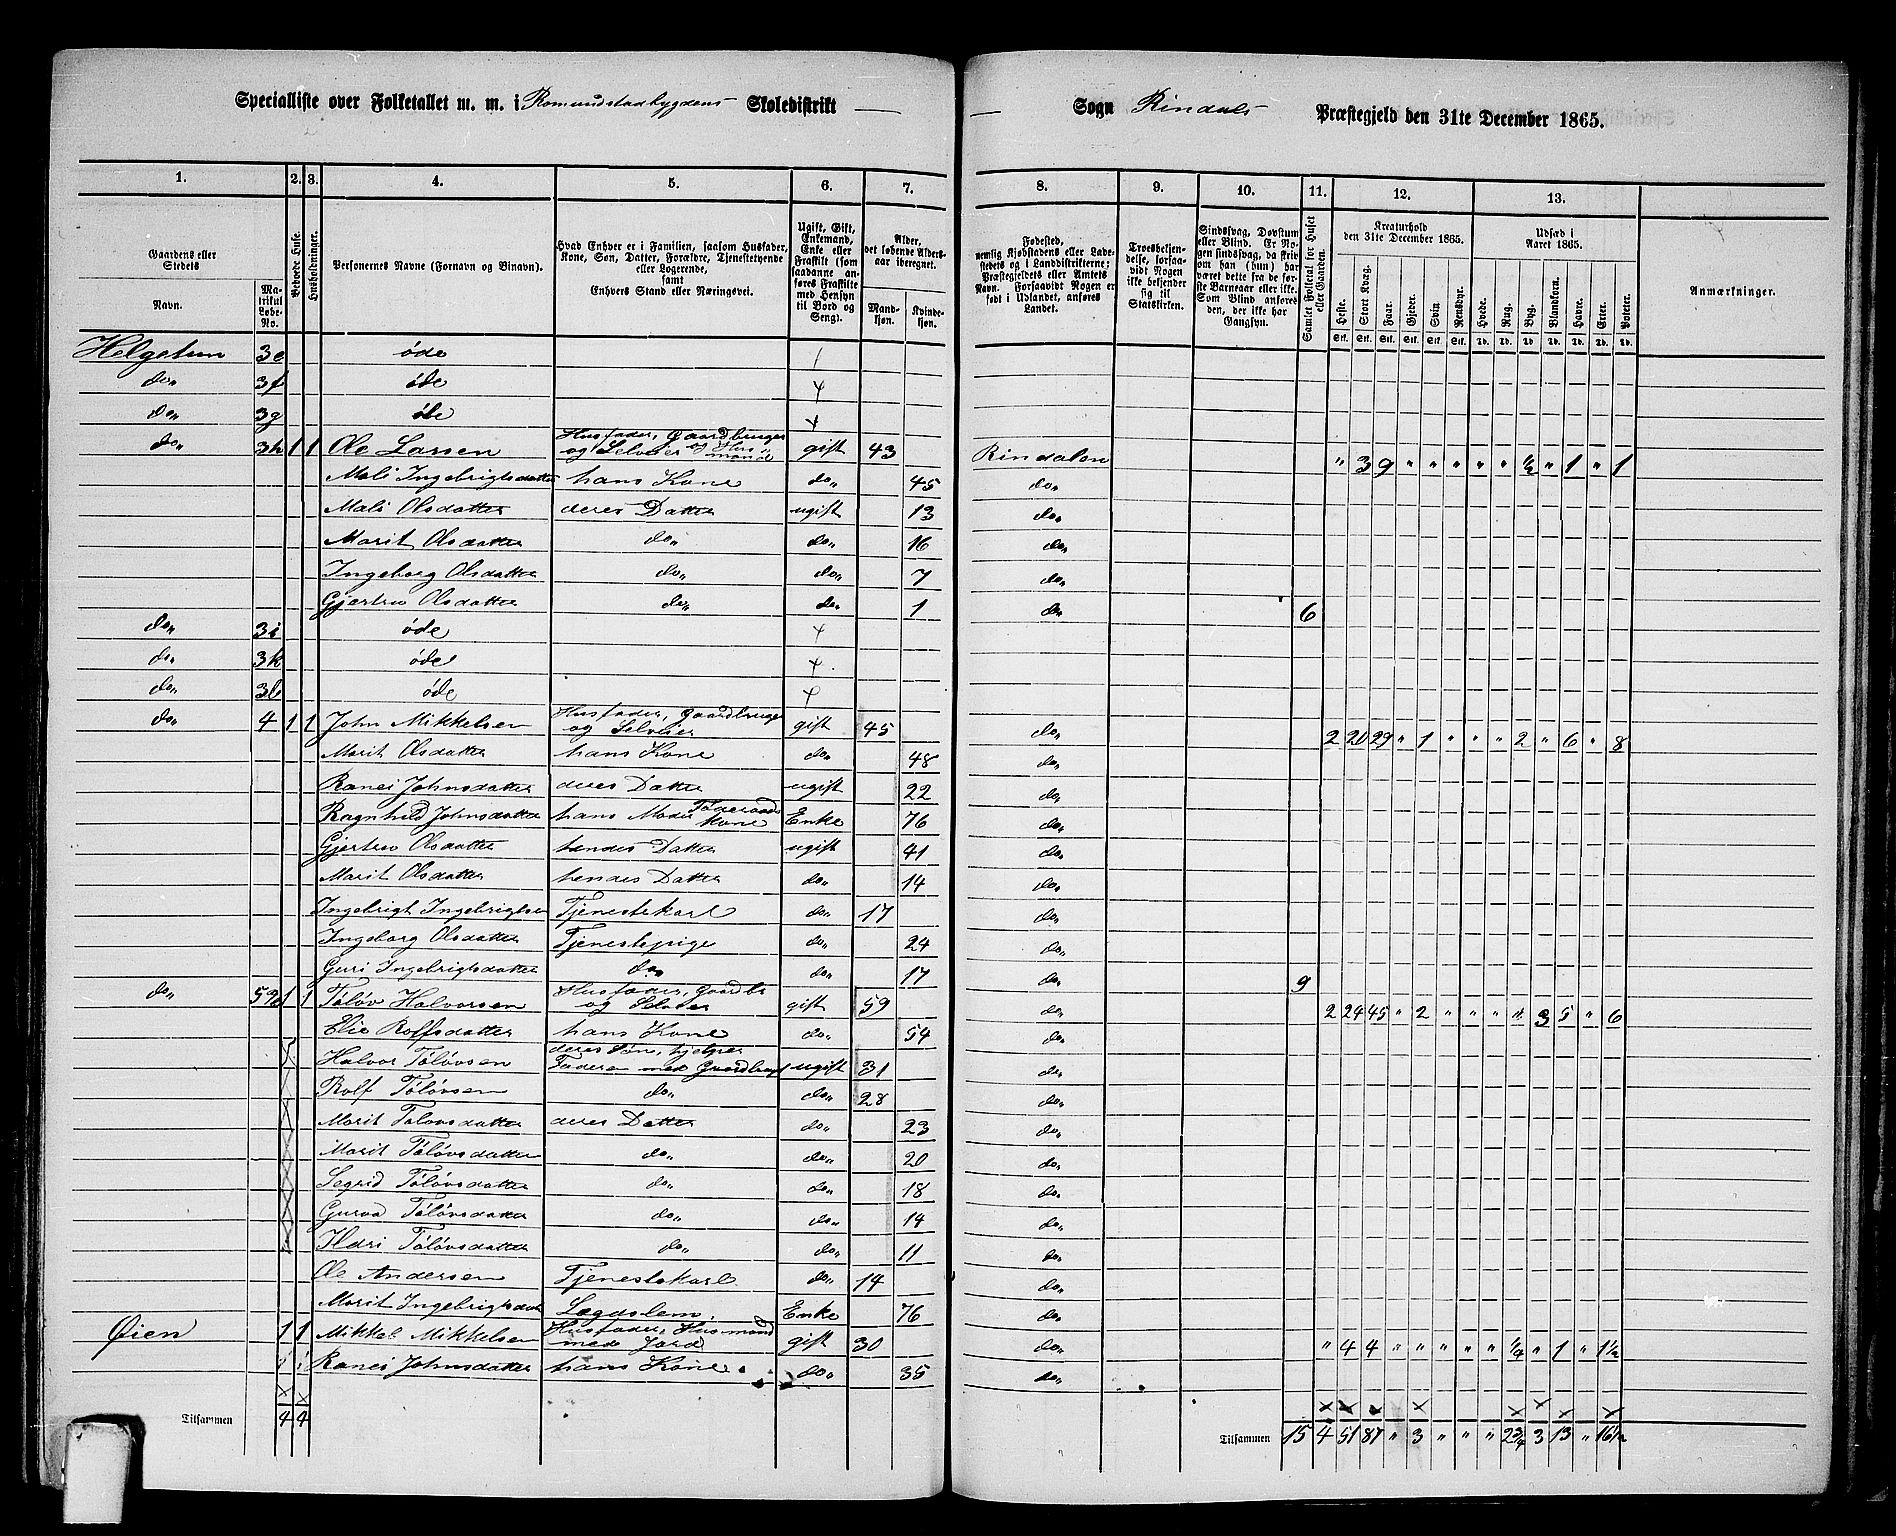 Specialliste over Folketallet m. m. i Romundstadbygdens Skoledistrikt — — Sogn Rindals Præstegjeld den 31te December 1865.
1. 2. 3. 4. 5. 6. 7. 8. 9. 10. 11. 12. 13.
Gaardens eller Stedets
Navn.
Matrikul Løbe-No.
Bebøede Huse.
Husholdninger.
Personernes Navne (Fornavn og Binavn).
Hvad Enhver er i Familien, saasom Husfader, Kone, Søn, Datter, Forældre, Tjenestetyende eller Logerende, samt Enhvers Stand eller Næringsvei.
Ugift, Gift, Enkemand, Enke eller Fraskilt (som saadanne anføres Fraskilte med Hensyn til Bord og Seng).
Alder, det løbende Aldersaar iberegnet.
Mandkjøn. Kvindekjøn.
Fødested, nemlig Kjøbstadens eller Ladestedets og i Landdistrikterne; Præstegjeldets eller Amtets Navn. Forsaavidt Nogen er født i Udlandet, anføres Landet.
Troesbekjendelse, forsaavidt Nogen ikke bekjender sig til Statskirken.
Sindssvag, Døvstum eller Blind. Er Nogen sindssvag, da skrives om han (hun) har været dette fra de første Barneaar eller ikke. Som Blind anføres den, der ikke har Gangsyn.
Samlet Folketal for Huset eller Gaarden.
Kreaturhold den 31te December 1865.
Udsæd i Aaret 1865.
Heste. Stort Kvæg. Faar. Gjeder. Svin. Rensdyr. Hvede. Rug. Byg. Blandkorn. Havre. Erter. Poteter.
Stk. Stk. Stk. Stk. Stk. Stk. Td. Td. Td. Td. Td. Td. Td.
Anmærkninger.
Helgetun 3e øde
do„ 3f øde
do„ 3g øde
do„ 3h 1 1 Ole Larsen Husfader, Gaardbruger og Selveier og Husmand gift 43 Rindalen „ 3 9 „ „ „ „ „ ½ „ 1 „ 1
Mali Ingebrigtsdatter hans Kone do„ 45 do„
Mali Olsdatter deres Datter ugift 13 do„
Marit Olsdatter do„ do„ 16 do„
Ingeborg Olsdatter do„ do„ 7 do„
Gjertru Olsdatter do„ do„ 1 do„ 6
do„ 3i øde
do„ 3k øde
do„ 3l øde
do„ 4 1 1 John Mikkelsen Husfader, Gaardbruger og Selveier gift 45 do„ 2 20 29 „ 1 „ „ „ 2 „ 6 „ 8
Marit Olsdatter hans Kone do„ 48 do„
Ranei Johnsdatter deres Datter ugift 22 do„
Ragnhild Johnsdatter hans Moder Føderaads Kone Enke 76 do„
Gjertru Olsdatter hendes Datter ugift 41 do„
Marit Olsdatter hendes Datter do„ 14 do„
Ingebrigt Ingebrigtsen Tjenestekarl do„ 17 do„
Ingeborg Olsdatter Tjenestepige do„ 24 do„
Guri Ingebrigtsdatter do„ do„ 17 do„ 9
do„ 59a 1 1 Tøløv Halvorsen Husfader, Gaardbr og Selveier gift 59 do„ 2 24 45 „ 2 „ „ „ „ 3 5 „ 6
Elie Rolfsdatter hans Kone do„ 54 do„
Halvor Tøløvsen deres Søn, hjelper Faderen med Gaardbrug ugift 31 do„
Rolf Tøløvsen do„ do„ 28 do„
Marit Tøløvsdatter deres Datter do„ 23 do„
Marit Tøløvsdatter do„ do„ 20 do„
Segrid Tøløvsdatter do„ do„ 18 do„
Gurva Tøløvsdatter do„ do„ 14 do„
Ildri Tøløvsdatter do„ do„ 11 do„
Ole Andersen Tjenestekarl do„ 14 do„
Marit Ingebrigtsdat Lægdslem Enke 76 do„
Øien 1 1 Mikkel Mikkelsen Husfader, Husmand med Jord gift 30 do„ „ 4 4 „ „ „ „ „ ¼ „ 1 „ 1½
Ranei Johnsdatter hans Kone do„ 35 do„
Tilsammen 4 4
Tilsammen 15 4 51 87 „ 3 „ „ „ 2¾ 3 13 „ 16½